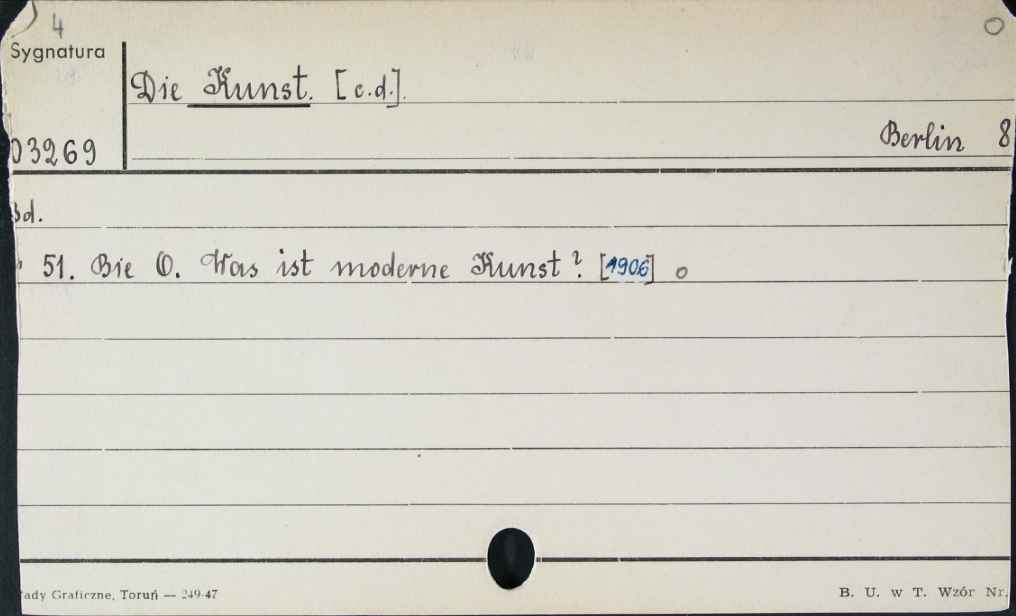 4 O
Sygnatura
Die Kunst. [c.d.].
03269
Berlin 8
Bd.
" 51. Bie O. Was ist moderne Kunst? [1906] o
ady Graficzne, Toruń — 249-47
B. U. w T. Wzór Nr.